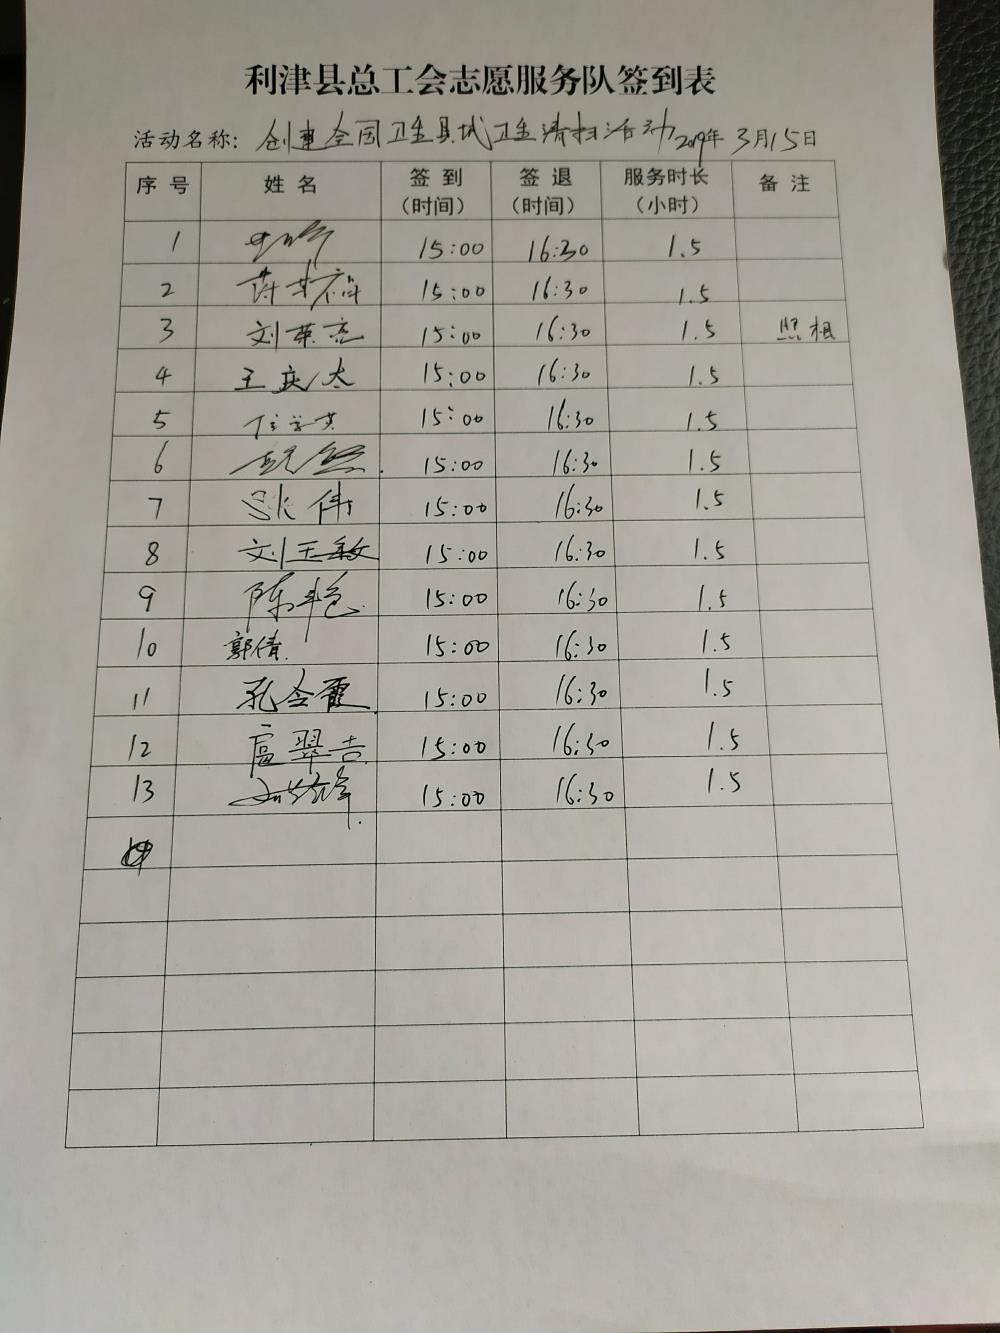 利津县总工会志愿服务队签到表
活动名称：创建全国卫生县城卫生清扫活动 2019年3月15日
序号 姓名 签到（时间） 签退（时间） 服务时长（小时） 备注
1 15:00 16:30 1.5
2 15:00 16:30 1.5
3 刘英亮 15:00 16:30 1.5 照相
4 王庆太 15:00 16:30 1.5
5 15:00 16:30 1.5
6 15:00 16:30 1.5
7 伟 15:00 16:30 1.5
8 刘玉敏 15:00 16:30 1.5
9 陈艳 15:00 16:30 1.5
10 郭倩 15:00 16:30 1.5
11 孔令霞 15:00 16:30 1.5
12 扈翠吉 15:00 16:30 1.5
13 15:00 16:30 1.5